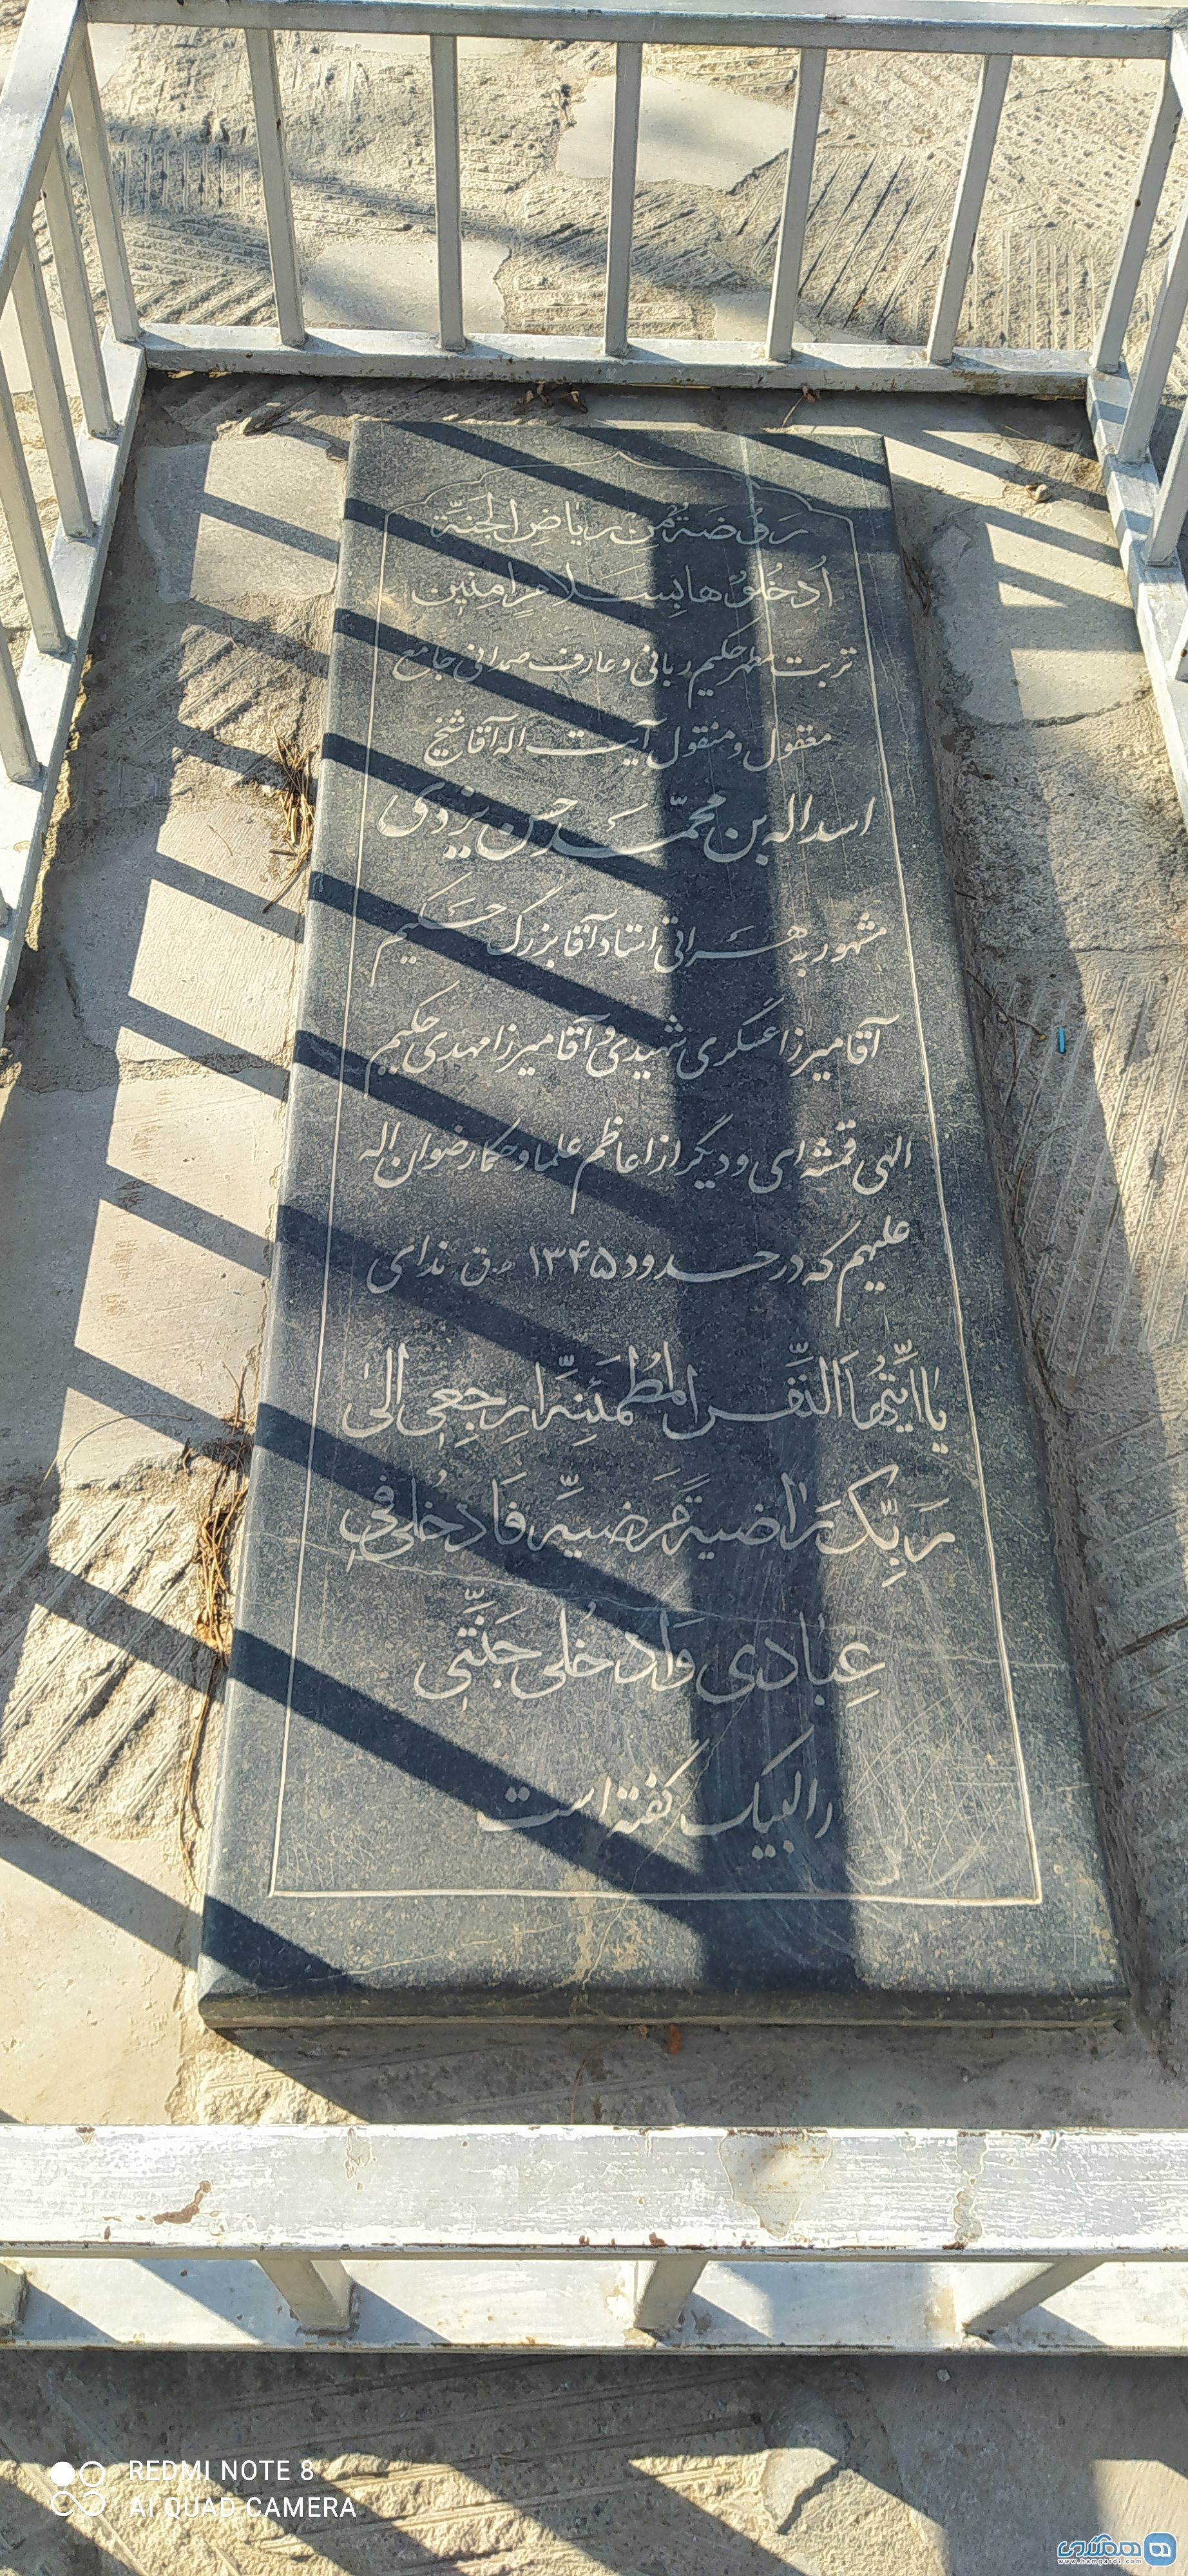 رَوْضَةٌ مِّن رِیاضِ الجَنَّة
اُدخُلُوْهٰا بِسَلامٍ اٰمِنین
تربت مطهر حکیم ربانی و عارف صمدانی جامع
معقول و منقول آیت اله آقا شیخ
اسداله بن محمّدحسن یزدی
مشهور به هراتی استاد آقا بزرگ حکیم
آقا میرزا عسکری شهیدی و آقا میرزا مهدی حکیم
الهی قمشه ای و دیگر از اعاظم علما و حکما رضوان اله
علیهم که در حدود ۱۳۴۵ ه‍.ق ندای
یٰا اَیَّتُهَا النَّفس المُطمَئِنَّه اِرجِعِی اِلیٰ
رَبِّکِ رٰاضیةً مَرضیّه فَادخُلی فی
عِبٰادی وَادخُلی جَنَّتی
را لبیک گفته است
REDMI NOTE 8
AI QUAD CAMERA
همگردی
www.hamgardi.com